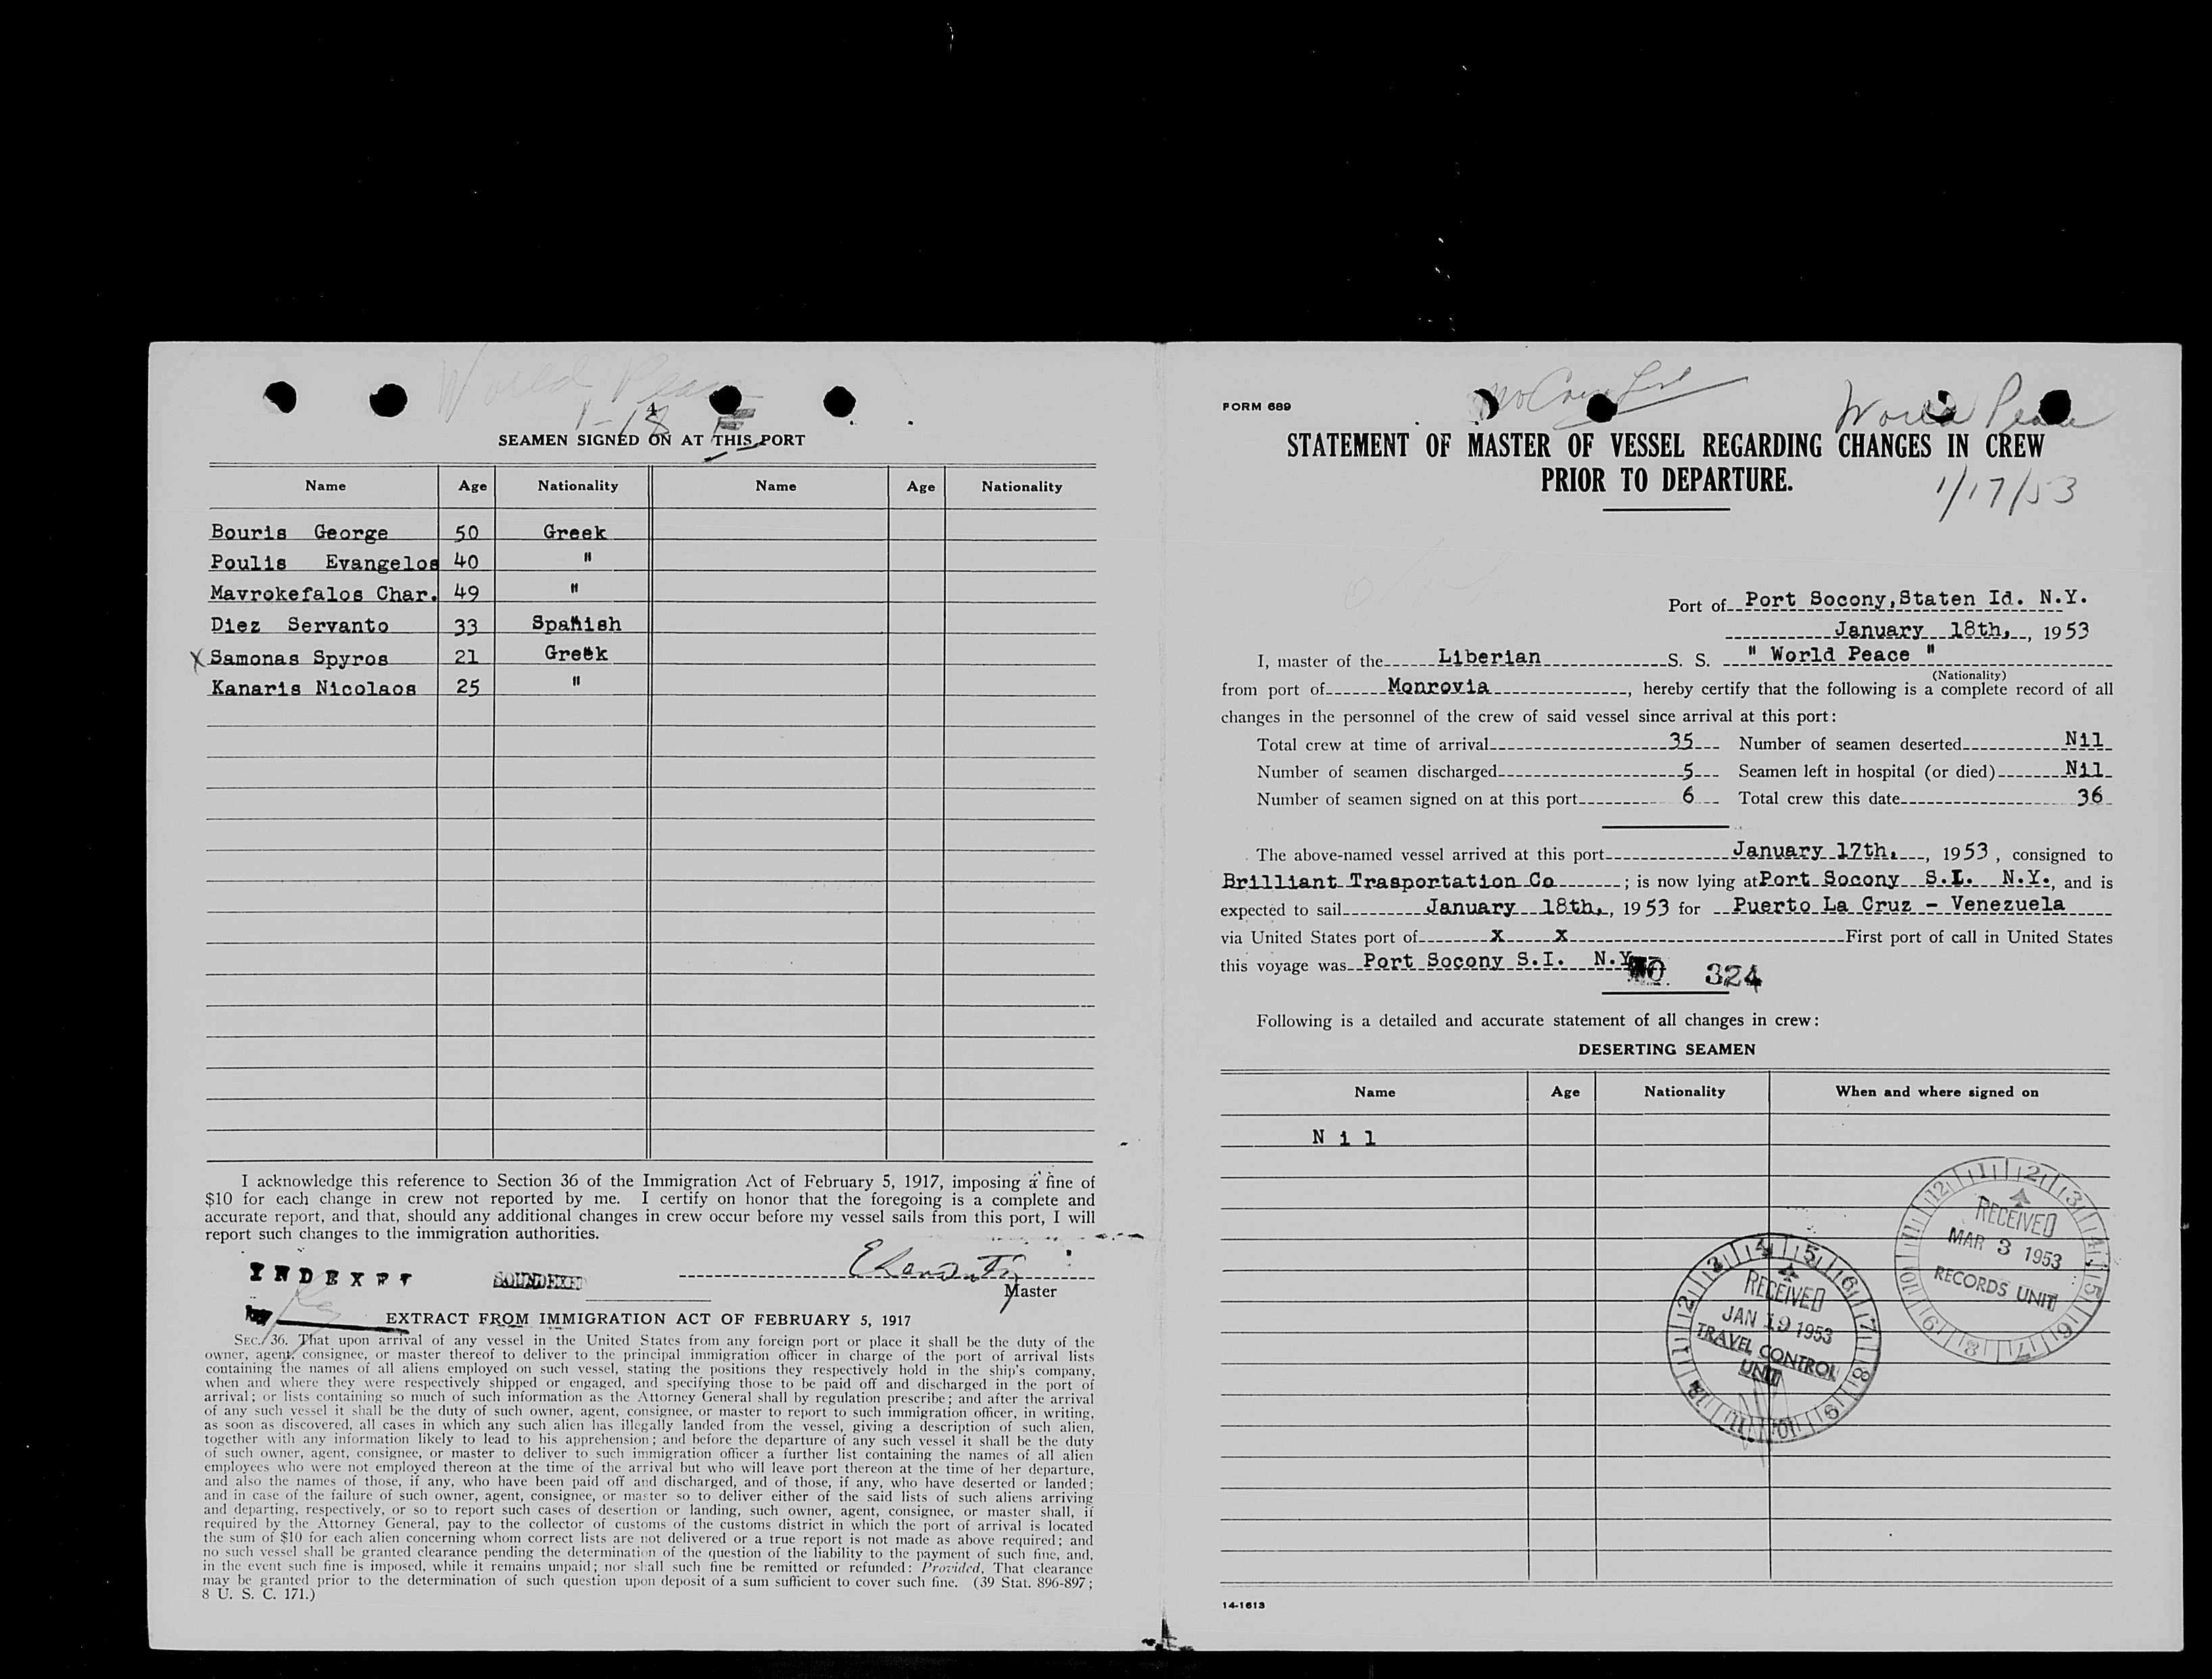 World Peace
1-18
4
SEAMEN SIGNED ON AT THIS PORT
Name Age Nationality Name Age Nationality
Bouris George 50 Greek
Poulis Evangelos 40 "
Mavrokefalos Char. 49 "
Diez Servanto 33 Spanish
X Samonas Spyros 21 Greek
Kanaris Nicolaos 25 "
I acknowledge this reference to Section 36 of the Immigration Act of February 5, 1917, imposing a fine of
$10 for each change in crew not reported by me. I certify on honor that the foregoing is a complete and
accurate report, and that, should any additional changes in crew occur before my vessel sails from this port, I will
report such changes to the immigration authorities.
SOUNDEXED
Master
EXTRACT FROM IMMIGRATION ACT OF FEBRUARY 5, 1917
SEC. 36. That upon arrival of any vessel in the United States from any foreign port or place it shall be the duty of the
owner, agent, consignee, or master thereof to deliver to the principal immigration officer in charge of the port of arrival lists
containing the names of all aliens employed on such vessel, stating the positions they respectively hold in the ship's company,
when and where they were respectively shipped or engaged, and specifying those to be paid off and discharged in the port of
arrival; or lists containing so much of such information as the Attorney General shall by regulation prescribe; and after the arrival
of any such vessel it shall be the duty of such owner, agent, consignee, or master to report to such immigration officer, in writing,
as soon as discovered, all cases in which any such alien has illegally landed from the vessel, giving a description of such alien,
together with any information likely to lead to his apprehension; and before the departure of any such vessel it shall be the duty
of such owner, agent, consignee, or master to deliver to such immigration officer a further list containing the names of all alien
employees who were not employed thereon at the time of the arrival but who will leave port thereon at the time of her departure,
and also the names of those, if any, who have been paid off and discharged, and of those, if any, who have deserted or landed;
and in case of the failure of such owner, agent, consignee, or master so to deliver either of the said lists of such aliens arriving
and departing, respectively, or so to report such cases of desertion or landing, such owner, agent, consignee, or master shall, if
required by the Attorney General, pay to the collector of customs of the customs district in which the port of arrival is located
the sum of $10 for each alien concerning whom correct lists are not delivered or a true report is not made as above required; and
no such vessel shall be granted clearance pending the determination of the question of the liability to the payment of such fine, and,
in the event such fine is imposed, while it remains unpaid; nor shall such fine be remitted or refunded: Provided, That clearance
may be granted prior to the determination of such question upon deposit of a sum sufficient to cover such fine. (39 Stat. 896-897;
8 U. S. C. 171.)
FORM 689
No Crew List
World Peace
STATEMENT OF MASTER OF VESSEL REGARDING CHANGES IN CREW
PRIOR TO DEPARTURE.
1/17/53
Port of Port Socony, Staten Id. N.Y.
January 18th, , 1953
I, master of the Liberian S. S. " World Peace "
(Nationality)
from port of Monrovia , hereby certify that the following is a complete record of all
changes in the personnel of the crew of said vessel since arrival at this port:
Total crew at time of arrival 35 Number of seamen deserted Nil
Number of seamen discharged 5 Seamen left in hospital (or died) Nil
Number of seamen signed on at this port 6 Total crew this date 36
The above-named vessel arrived at this port January 17th, , 1953 , consigned to
Brilliant Trasportation Co ; is now lying at Port Socony S.I. N.Y., and is
expected to sail January 18th, , 1953 for Puerto La Cruz - Venezuela
via United States port of x x First port of call in United States
this voyage was Port Socony S.I. N.Y.
324
Following is a detailed and accurate statement of all changes in crew:
DESERTING SEAMEN
Name Age Nationality When and where signed on
N i l
RECEIVED
MAR 3 1953
RECORDS UNIT
RECEIVED
JAN 19 1953
TRAVEL CONTROL
UNIT
14-1613